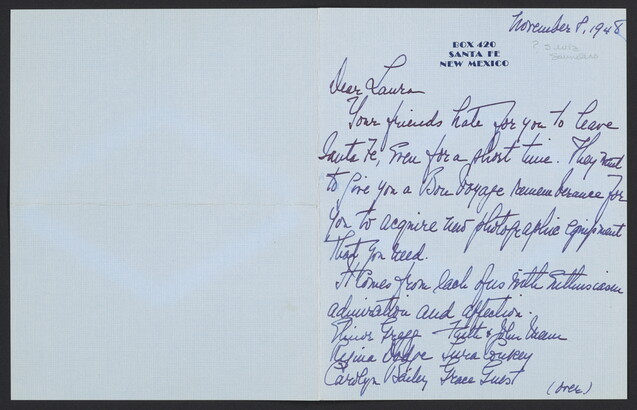 November 8, 1948
BOX 420
SANTA FE
NEW MEXICO
Dear Laura
Your friends hate for you to leave
Santa Fe, Even for a short time. They want
to give you a Bon Voyage rememberance for
you to acquire new photographic Equipment
that you need.
It Comes from Each of us with Enthusiasm
admiration and affection.
Elinor Gregg Faith & John Meem
Regina Dodge
Carolyn Bailey Grace Guest
(over)